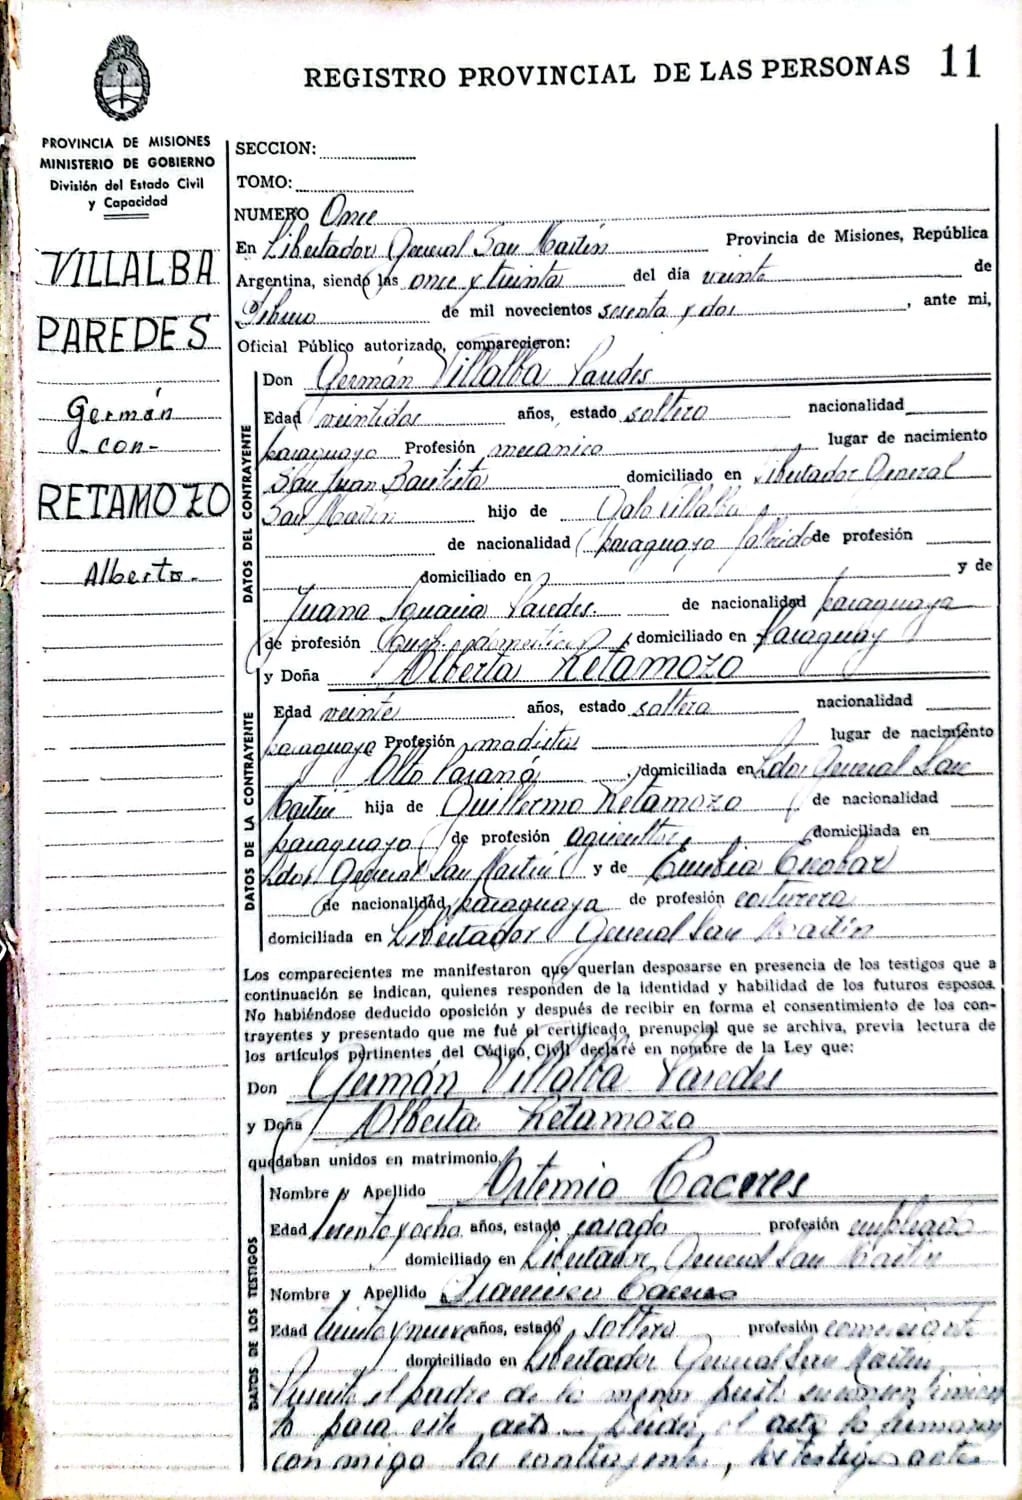 REGISTRO PROVINCIAL DE LAS PERSONAS 11
PROVINCIA DE MISIONES
MINISTERIO DE GOBIERNO
División del Estado Civil
y Capacidad
VILLALBA
PAREDES
Germán
-con-
RETAMOZO
Alberto.-
SECCION:
TOMO:
NUMERO Once
En Libertador General San Martín Provincia de Misiones, República
Argentina, siendo las once y treinta del día veinte de
Febrero de mil novecientos sesenta y dos, ante mi,
Oficial Público autorizado, comparecieron:
DATOS DEL CONTRAYENTE
Don Germán Villalba Paredes
Edad veintidos años, estado soltero nacionalidad
paraguayo Profesión mecanico lugar de nacimiento
San Juan Bautista domiciliado en Libertador General
San Martín hijo de Villalba
de nacionalidad paraguayo fallecido de profesión
domiciliado en y de
Juana Ignacia Paredes. de nacionalidad paraguaya
de profesión domiciliado en Paraguay
DATOS DE LA CONTRAYENTE
y Doña Alberta Retamozo
Edad veinte años, estado soltera nacionalidad
paraguaya Profesión modista lugar de nacimiento
Alto Paraná domiciliada en Ldor General San
Martín hija de Guillermo Retamozo de nacionalidad
paraguayo de profesión agricultor domiciliada en
Ldor General San Martín y de Escobar
de nacionalidad paraguaya de profesión costurera
domiciliada en Libertador General San Martín
Los comparecientes me manifestaron que querían desposarse en presencia de los testigos que a
continuación se indican, quienes responden de la identidad y habilidad de los futuros esposos.
No habiéndose deducido oposición y después de recibir en forma el consentimiento de los con-
trayentes y presentado que me fué el certificado prenupcial que se archiva, previa lectura de
los artículos pertinentes del Código Civil declaré en nombre de la Ley que:
Don Germán Villalba Paredes
y Doña Alberta Retamozo
quedaban unidos en matrimonio,
DATOS DE LOS TESTIGOS
Nombre y Apellido Artemio Caceres
Edad y ocho años, estado casado profesión empleado
domiciliado en Libertador General San Martín
Nombre y Apellido Francisco Caceres
Edad y nueve años, estado soltero profesión comerciante
domiciliado en Libertador General San Martín
Presente el padre de la menor su consentimien
to para este acto. Leida el acta la firmaron
conmigo los contrayentes, testigos